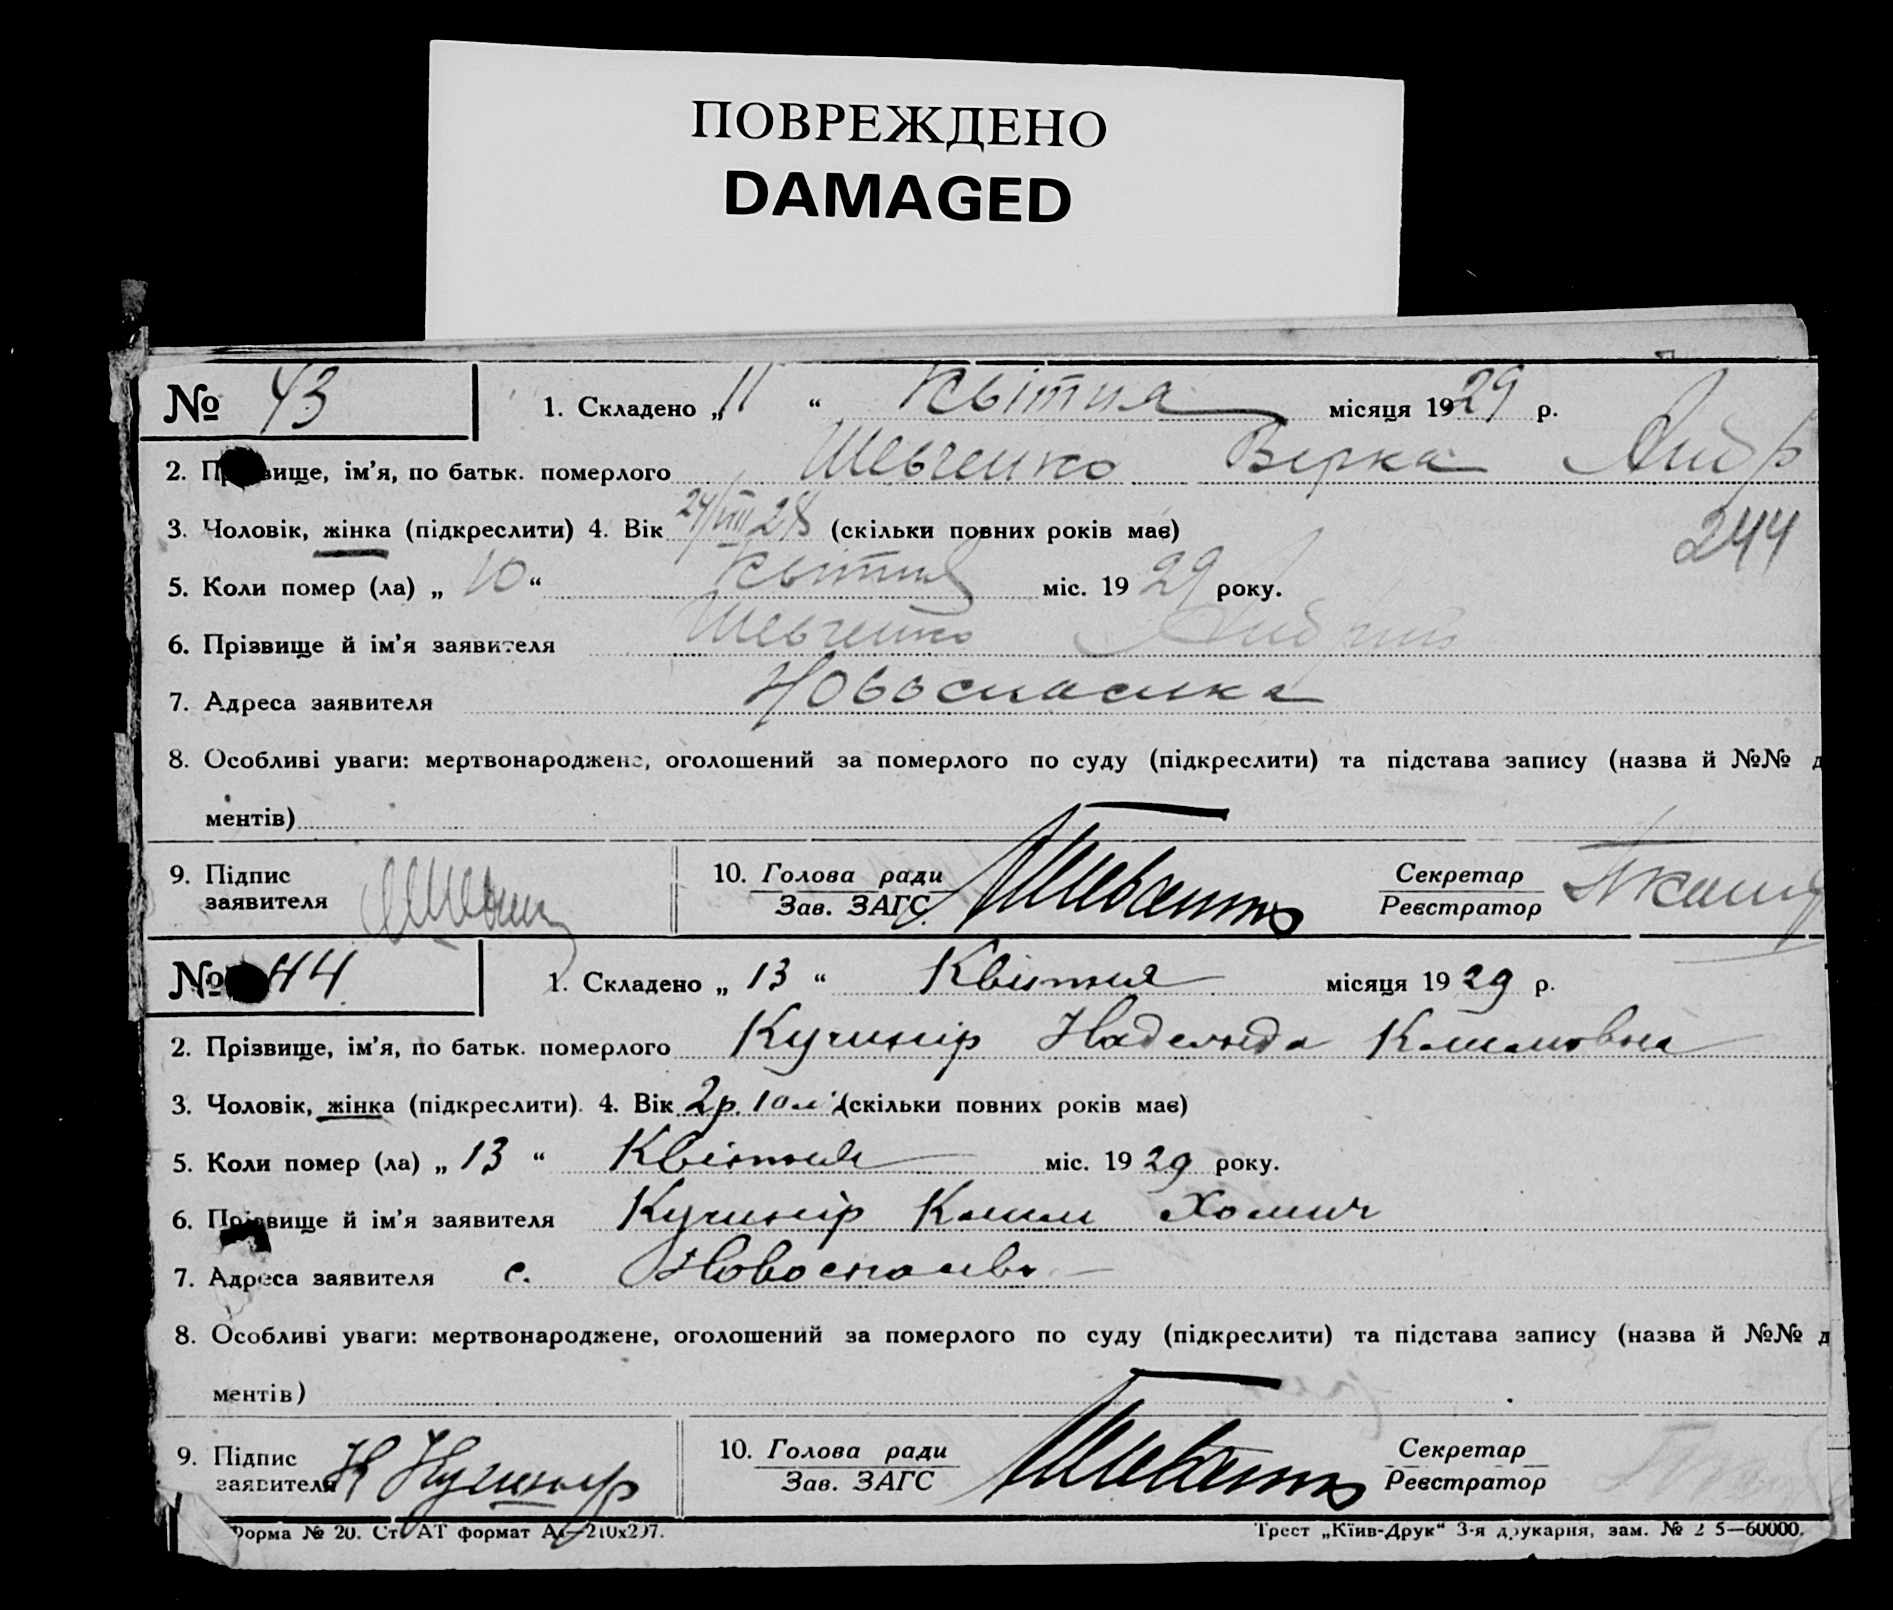 ПОВРЕЖДЕНО
DAMAGED
№ 43 1. Складено „ 11 “ Квітня місяця 1929 р.
2. Прізвище, ім’я, по батьк. померлого Шевченко Вєрка Андр
3. Чоловік, жінка (підкреслити) 4. Вік 24/VIII 28 (скільки повних років має)
244
5. Коли помер (ла) „ 10 “ квітня міс. 19 29 року.
6. Прізвище й ім’я заявителя Шевченко Андрій
7. Адреса заявителя Новоспаська
8. Особливі уваги: мертвонароджене, оголошений за померлого по суду (підкреслити) та підстава запису (назва й №№ д
ментів)
9. Підпис заявителя
10. Голова ради
Зав. ЗАГС
Шевченко
Секретар
Реєстратор
№ 44 1. Складено „ 13 “ Квітня місяця 19 29 р.
2. Прізвище, ім’я, по батьк. померлого Кучинір Надежда
3. Чоловік, жінка (підкреслити). 4. Вік 2р. 10 м. (скільки повних років має)
5. Коли помер (ла) „ 13 “ Квітня міс. 19 29 року.
6. Прізвище й ім’я заявителя Кучинір Хомич
7. Адреса заявителя с.
8. Особливі уваги: мертвонароджене, оголошений за померлого по суду (підкреслити) та підстава запису (назва й №№ д
ментів)
9. Підпис заявителя К Кучинир
10. Голова ради
Зав. ЗАГС
Шевченко
Секретар
Реєстратор
Форма № 20. Ст АТ формат А4—210х297.
Трест „Київ-Друк“ 3-я друкарня, зам. № 2 5—60000.